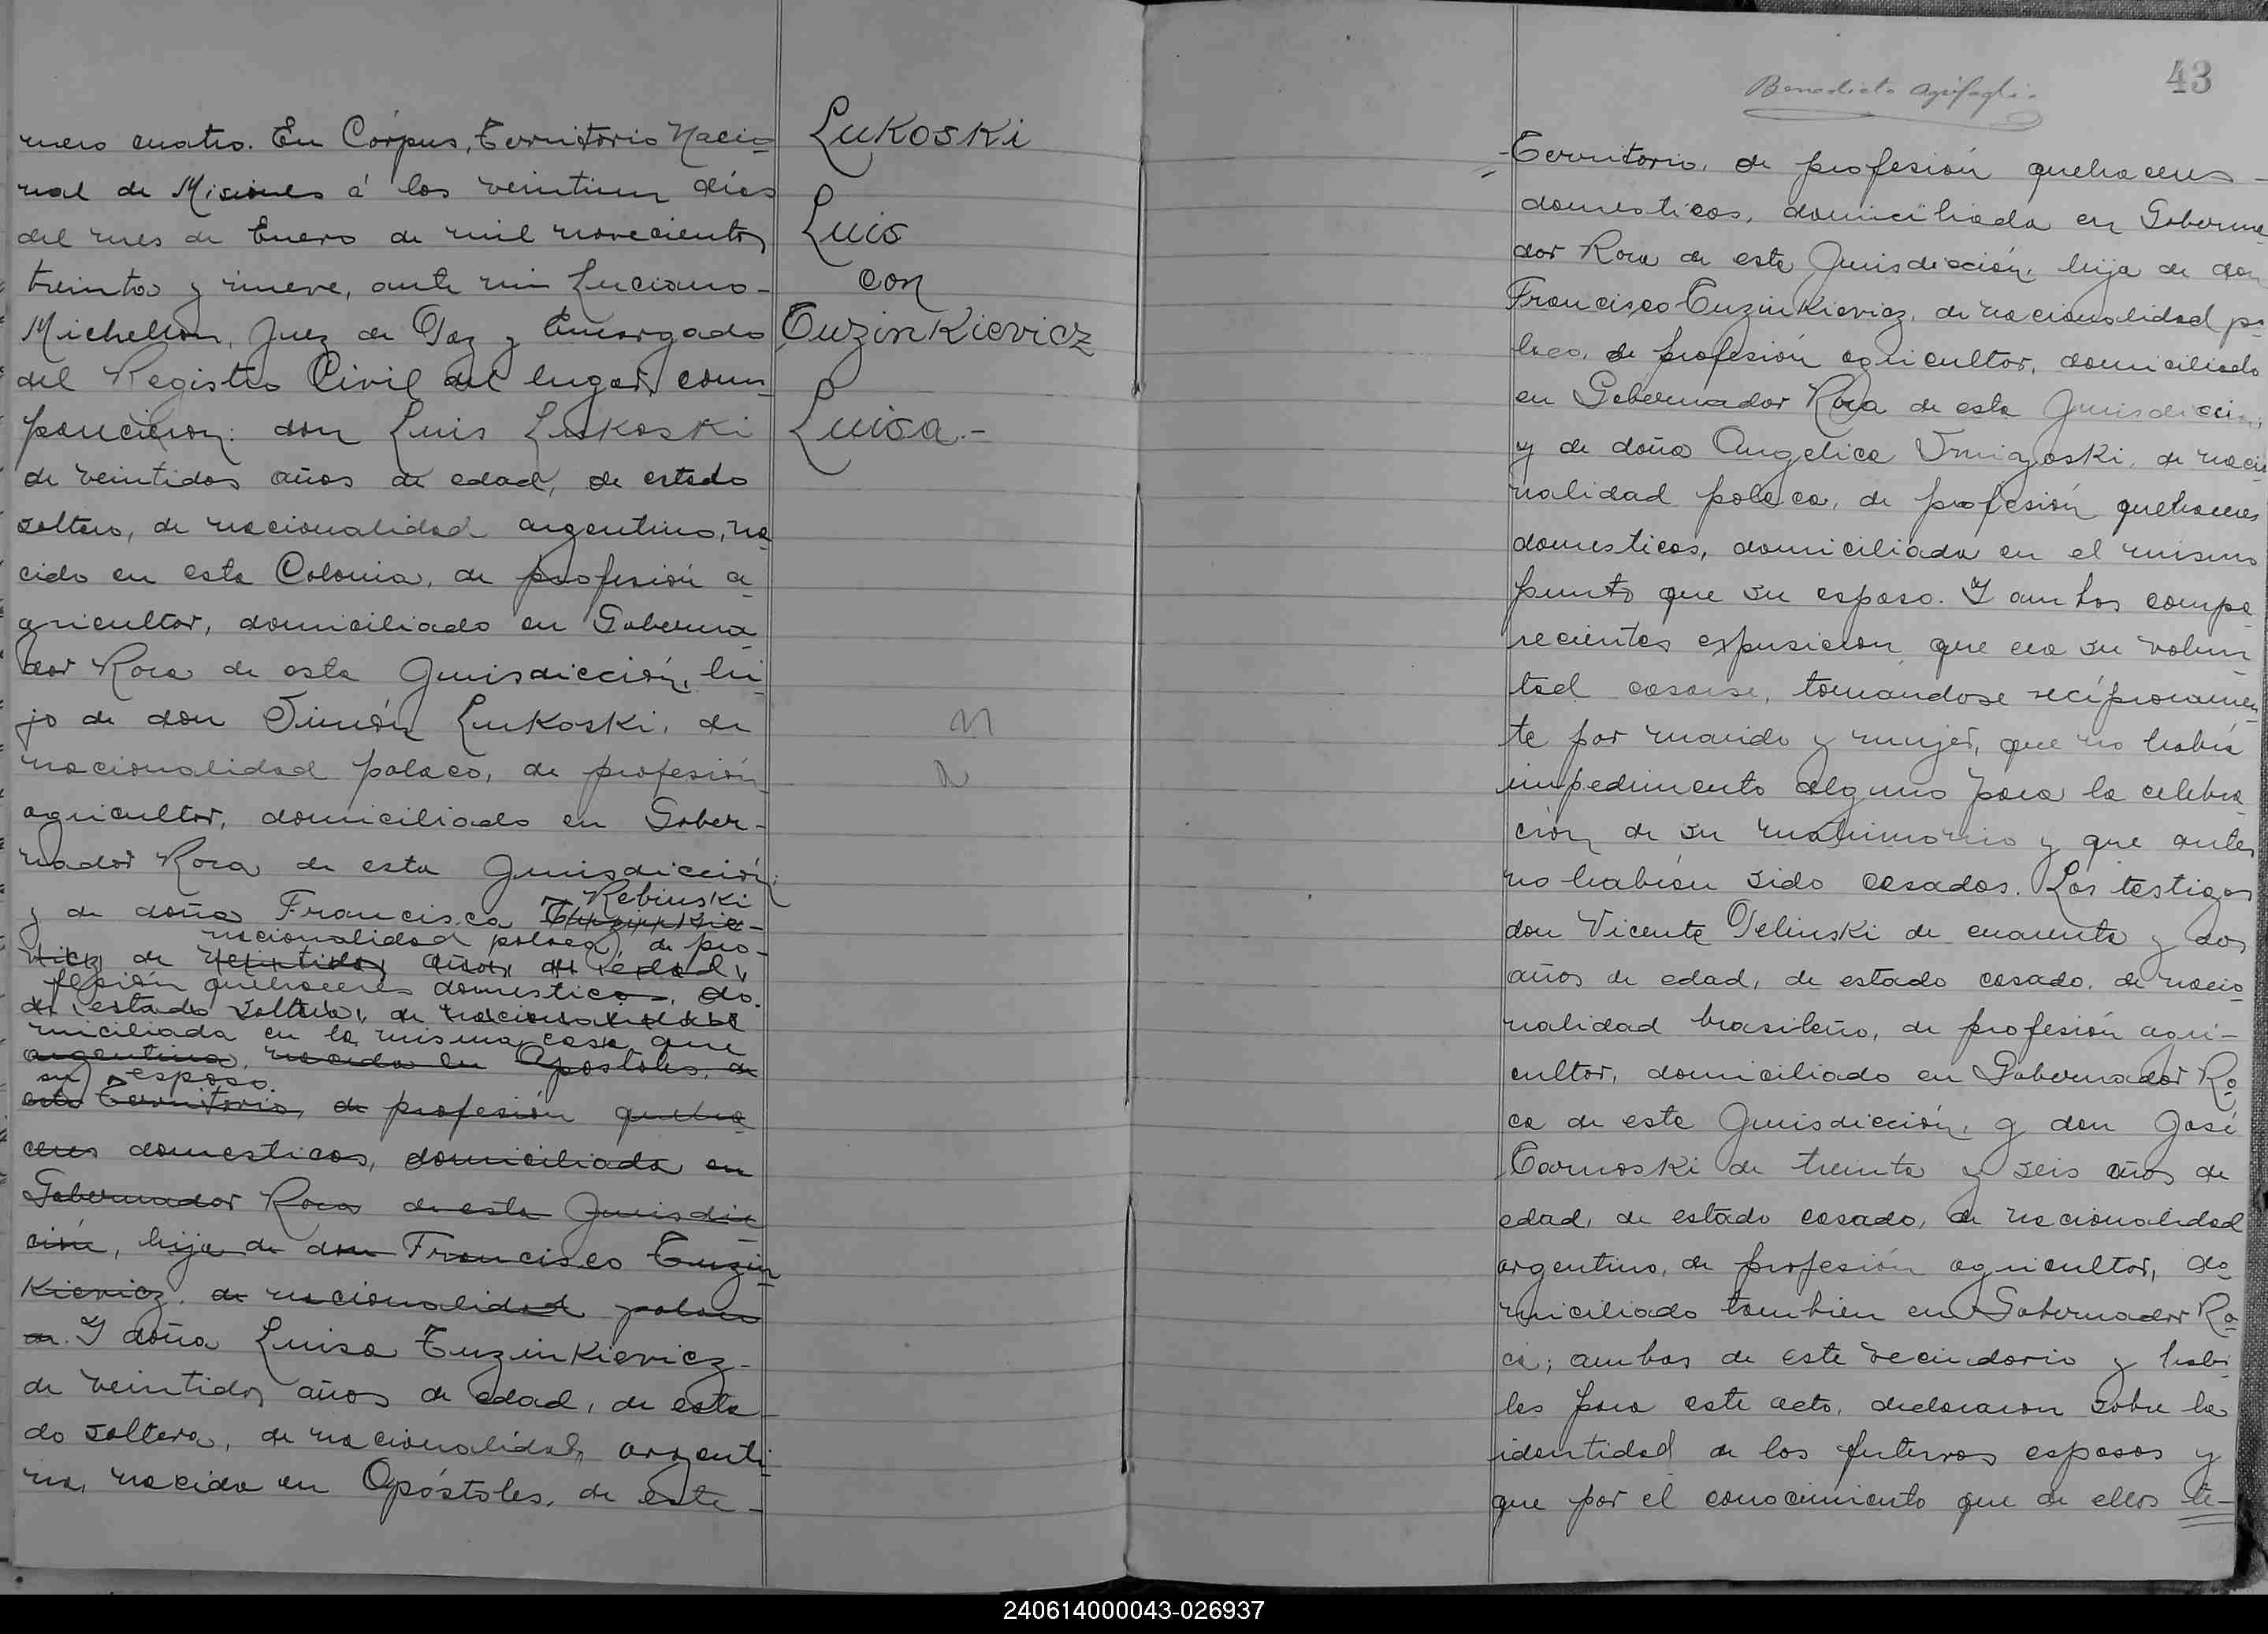 mero cuatro. En Córpus, Territorio Nacio=
nal de Misiones á los veintiun dias
del mes de Enero de mil novecientos
treinta y nueve, ante mi Luciano-
Michelson, Juez de Paz y Encargado
del Registro Civil del lugar, com=
parecieron: don Luis Lukoski
de veintidos años de edad, de estado
soltero, de nacionalidad argentino, na=
cido en esta Colonia, de profesión a=
gricultor, domiciliado en Goberna=
dor Roca de esta Jurisdicción, hi=
jo de don Simón Lukoski, de
nacionalidad polaco, de profesión
agricultor, domiciliado en Gober-
nador Roca de esta Jurisdicción,
Rebinski
y de doña Francisca Tuzinkie-
nacionalidad polaca, de pro-
vicz de veintidos años de edad,
fesión quehaceres domesticos, do-
de estado soltera, de nacionalidad
miciliada en la misma casa que
argentina, nacida en Apostoles, de
su esposo.
este Territorio, de profesión queha=
ceres domesticos, domiciliada en
Gobernador Roca de esta Jurisdic=
ción, hija de don Francisco Tuzin=
Kievicz, de nacionalidad polaco
Y doña Luisa Tuzinkievicz-
de veintidos años de edad, de esta-
do soltera, de nacionalidad argenti=
na, nacida en Apóstoles, de este-
Lukoski
Luis
con
Tuzinkievicz
Luisa.-
N
N
43
Benedicto
=Territorio, de profesión quehaceres-
domesticos, domiciliada en Goberna
dor Roca de esta Jurisdicción, hija de don
Francisco Tuzinkievicz, de nacionalidad po
laco, de profesión agricultor, domiciliado
en Gobernador Roca de esta Jurisdiccion,
y de doña Angelica Smigoski, de nacio
nalidad polaca, de profesión quehaceres
domesticos, domiciliada en el mismo
punto que su esposo. Y ambos compa=
recientes expusieron que era su volun=
tad casarse, tomandose recíprocamen=
te por marido y mujer, que no había
impedimento alguno para la celebra=
ción de su matrimonio y que antes
no habian sido casados. Los testigos
don Vicente Pelinski de cuarenta y dos
años de edad, de estado casado, de nacio=
nalidad brasileño, de profesión agri-
cultor, domiciliado en Gobernador Ro=
ca de esta Jurisdicción, y don José
Tarnoski de treinta y seis años de
edad, de estado casado, de nacionalidad
argentino, de profesión agricultor, do=
miciliado tambien en Gobernador Ro=
ca; ambos de este vecindario y habi=
les para este acto, declararon sobre la
identidad de los futuros esposos y
que por el conocimiento que de ellos te-
240614000043-026937